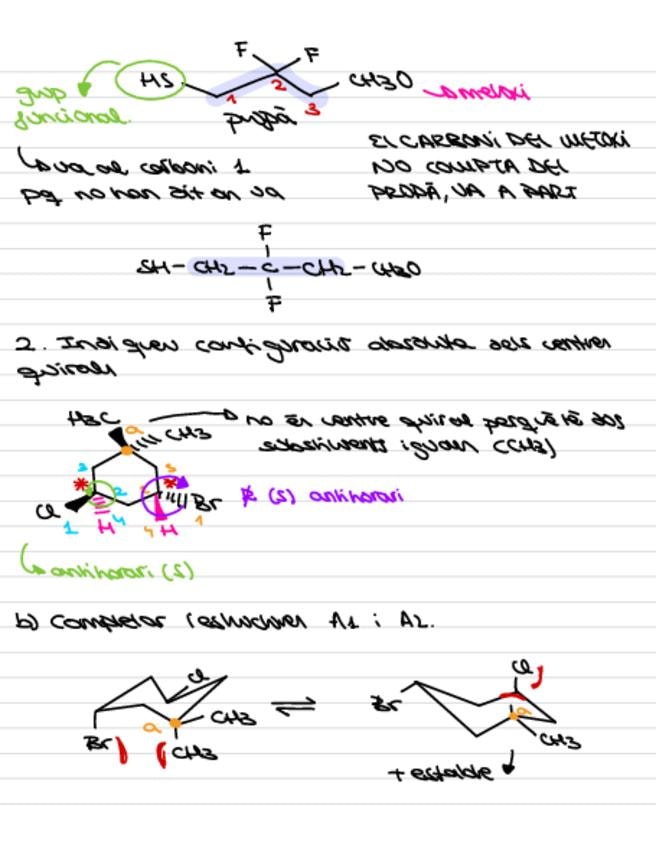 F F
HS CH3O → metoxi
grup 1 2 3
funcional. propà
El CARBONI DEL METOXI
↳ va al carboni 1 NO COMPTA DEL
pq no han dit on va PROPÀ, VA A PART
F
SH-CH2-C-CH2-CH3O
F
2. Indiqueu configuració absoluta dels centres
quirals
H3C a → no és centre quiral perquè té dos
CH3 substituents iguals (CH3)
3 3
* 2 * Br (S) antihorari
Cl 1 H 4 4 H 1
↳ antihorari (S)
b) Completar estructures A1 i A2.
Cl Cl
CH3 ⇌ Br a
a
Br CH3 CH3
+ estable